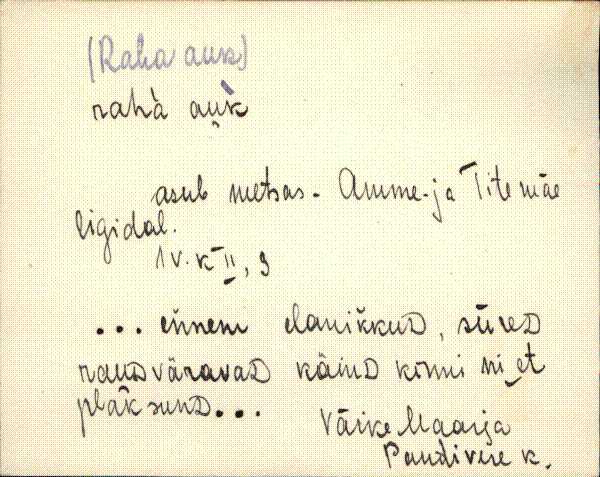 (Raha auk)
rahà auk
asub metsas. Amme- ja Titemäe
ligidal.
IV. k II, 9
... ennem elanikkud, sured
raudväravad käind kinni ni et
plaksund...
Väike Maarja
Pandivere k.